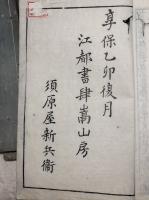 享保乙卯復月
江都書肆嵩山房
須原屋新兵衞